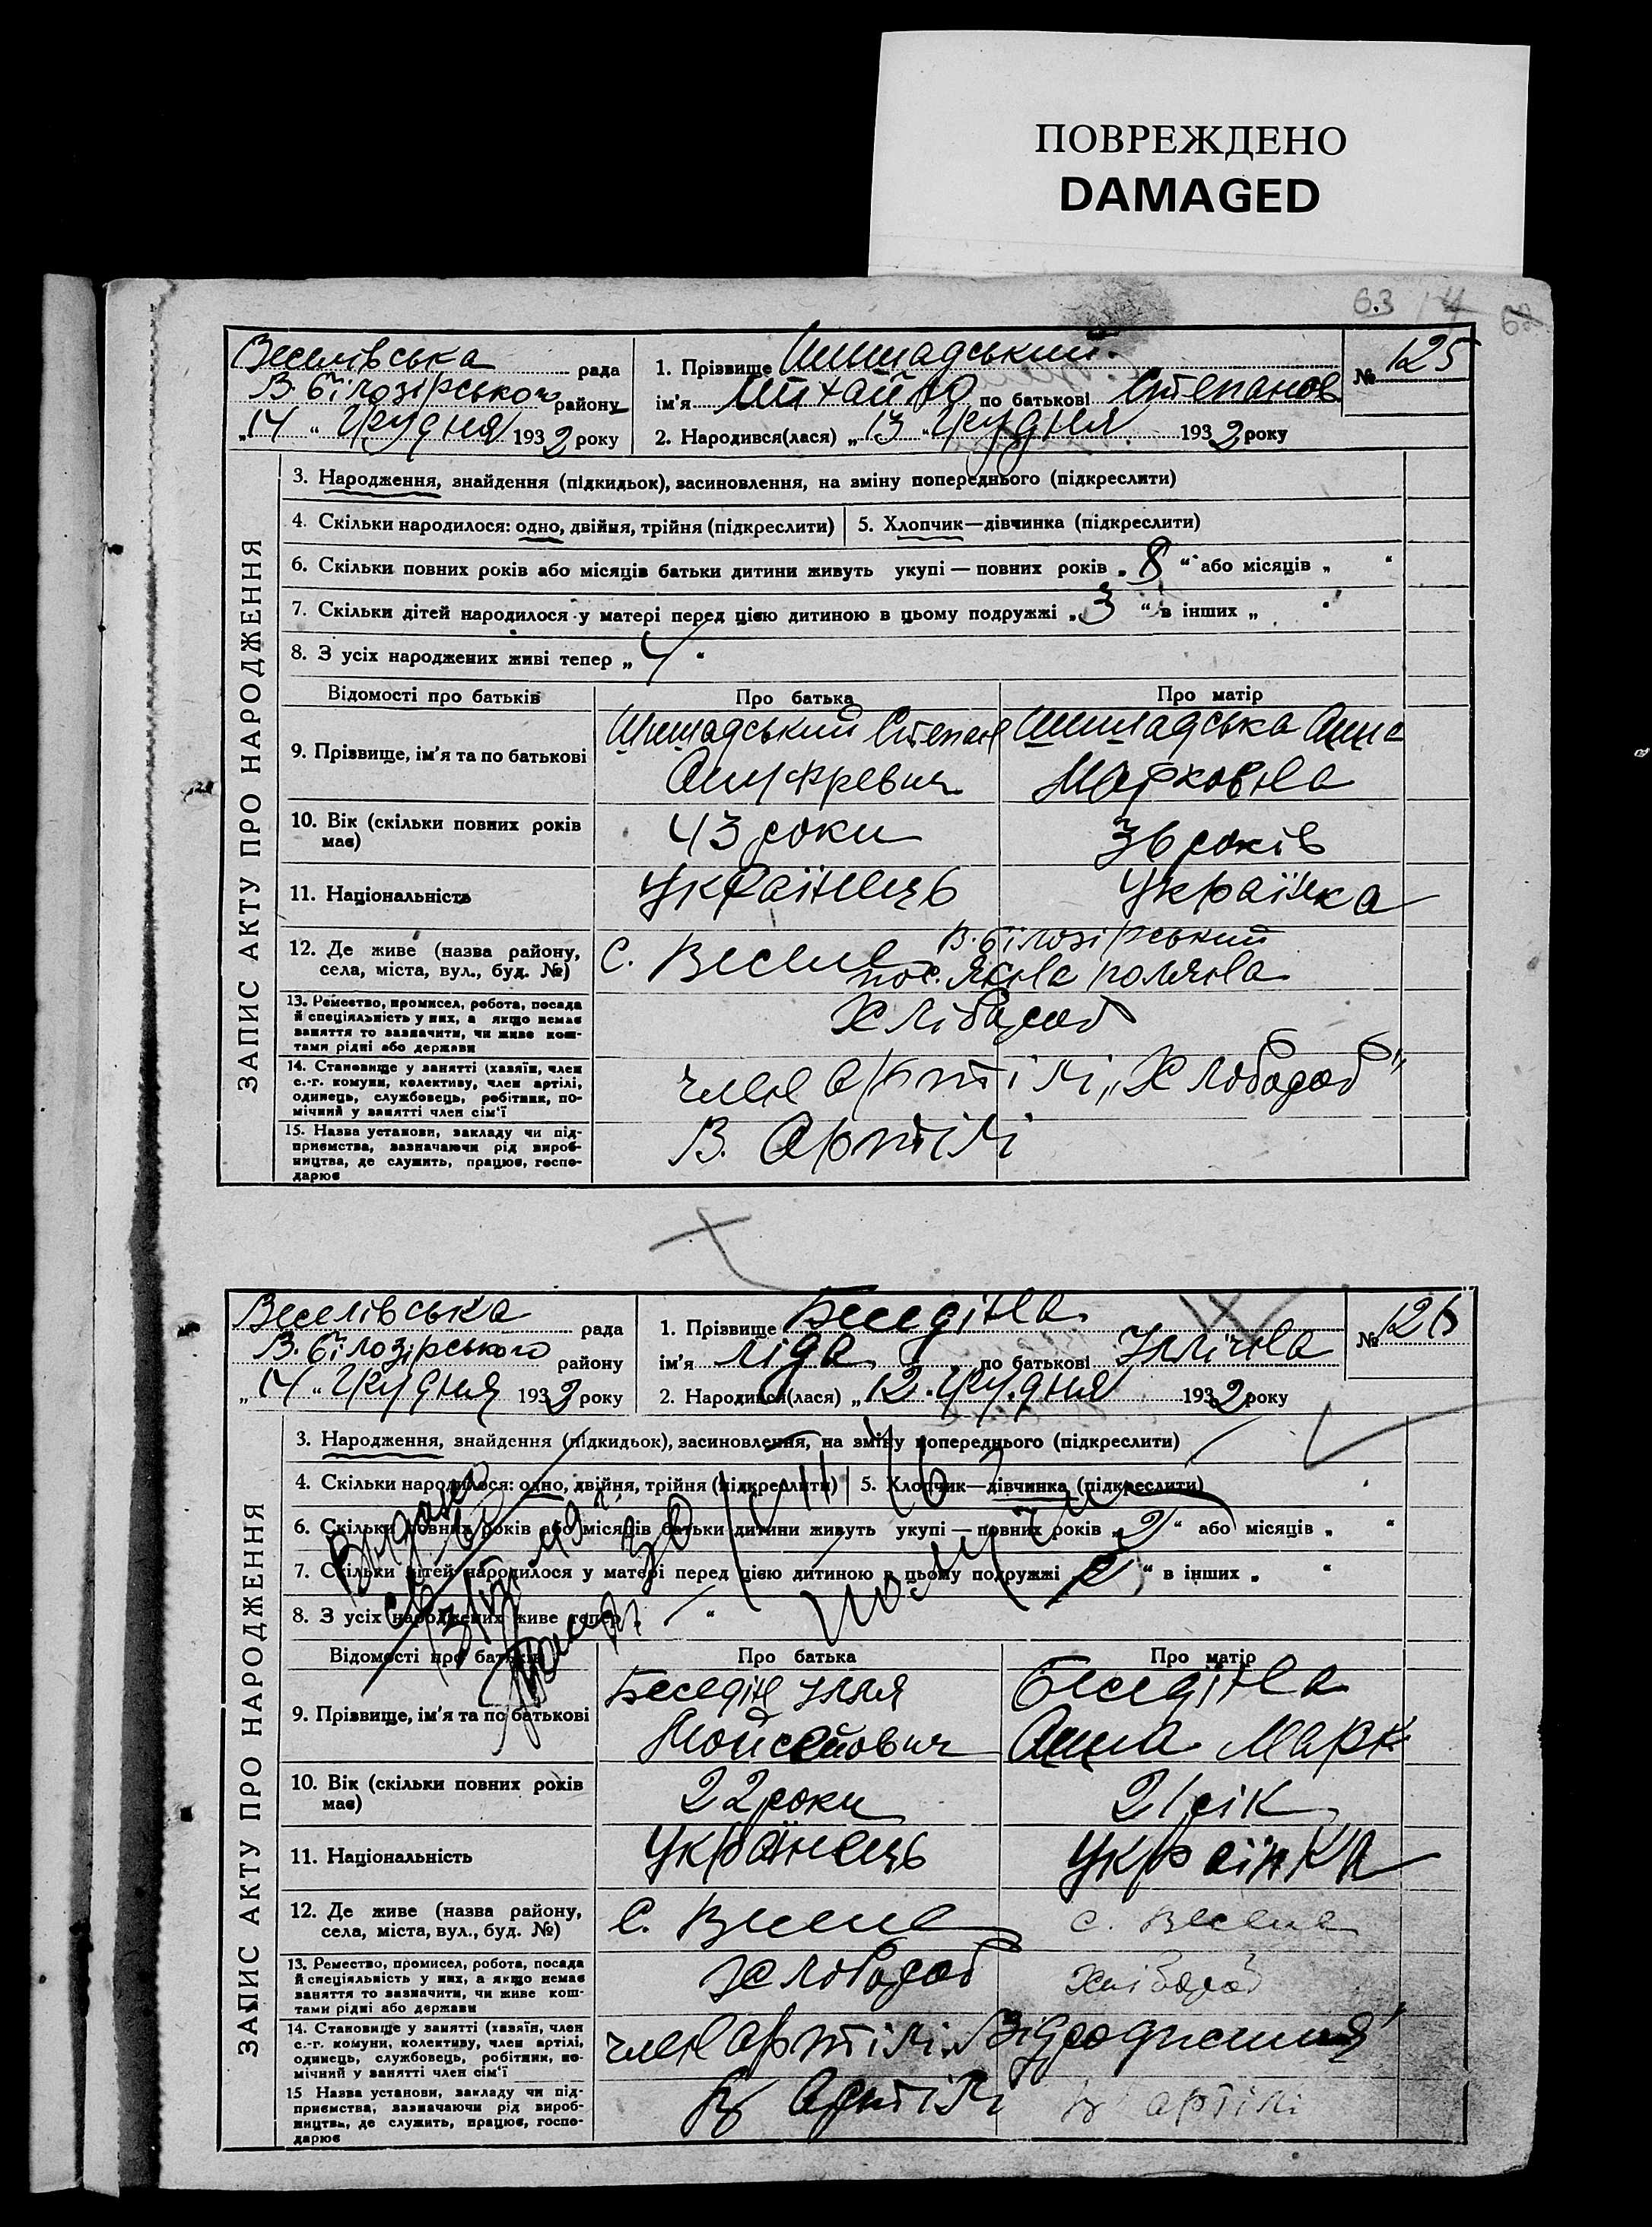 ПОВРЕЖДЕНО
DAMAGED
63
Веселівська рада
В. білозірського району
„14“ Грудня 1932 року
1. Прізвище
ім'я Михайло по батькові Степанов
2. Народився(лася) „13“ Грудня 1932 року
№ 125
ЗАПИС АКТУ ПРО НАРОДЖЕННЯ
3. Народження, знайдення (підкидьок), засиновлення, на зміну попереднього (підкреслити)
4. Скільки народилося: одно, двійня, трійня (підкреслити) 5. Хлопчик—дівчинка (підкреслити)
6. Скільки повних років або місяців батьки дитини живуть укупі — повних років „8“ або місяців „ “
7. Скільки дітей народилося у матері перед цією дитиною в цьому подружжі „3“ в інших „ “
8. З усіх народжених живі тепер „4“
Відомості про батьків Про батька Про матір
9. Прізвище, ім'я та по батькові
Степан Анна
Марковна
10. Вік (скільки повних років має) 43 роки 36 років
11. Національність Українець Українка
12. Де живе (назва району, села, міста, вул., буд. №) С. Весене В. білозірський
пос.
13. Ремество, промисел, робота, посада й спеціяльність у них, а якщо немає заняття то зазначити, чи живе коштами рідні або держави Хлібороб
14. Становище у занятті (хазяїн, член с.-г. комуни, колективу, член артілі, одинець, службовець, робітник, помічний у занятті член сім'ї член артілі „Хлобороб“
15. Назва установи, закладу чи підприємства, зазначаючи рід виробництва, де служить, працює, господарює В. Артілі
Веселівська рада
В. білозірського району
„14“ Грудня 1932 року
1. Прізвище Беседіна
ім'я Ліда по батькові Іллічна
2. Народився(лася) „12“ Грудня 1932 року
№ 126
ЗАПИС АКТУ ПРО НАРОДЖЕННЯ
3. Народження, знайдення (підкидьок), засиновлення, на зміну попереднього (підкреслити)
4. Скільки народилося: одно, двійня, трійня (підкреслити) 5. Хлопчик—дівчинка (підкреслити)
6. Скільки повних років або місяців батьки дитини живуть укупі — повних років „2“ або місяців „ “
7. Скільки дітей народилося у матері перед цією дитиною в цьому подружжі „ “ в інших „ “
8. З усіх народжених живе тепер „ “
Відомості про батьків Про батька Про матір
9. Прізвище, ім'я та по батькові
Беседін Ілля Беседіна
Мойсейович Анна Марк
10. Вік (скільки повних років має) 22 роки 21 рік
11. Національність Українець Українка
12. Де живе (назва району, села, міста, вул., буд. №) С. Весене с. Весене
13. Ремество, промисел, робота, посада й спеціяльність у них, а якщо немає заняття то зазначити, чи живе коштами рідні або держави Хлобороб Хлібороб
14. Становище у занятті (хазяїн, член с.-г. комуни, колективу, член артілі, одинець, службовець, робітник, помічний у занятті член сім'ї член артілі „Відродження“
15 Назва установи, закладу чи підприємства, зазначаючи рід виробництва, де служить, працює, господарює в Артілі в артілі